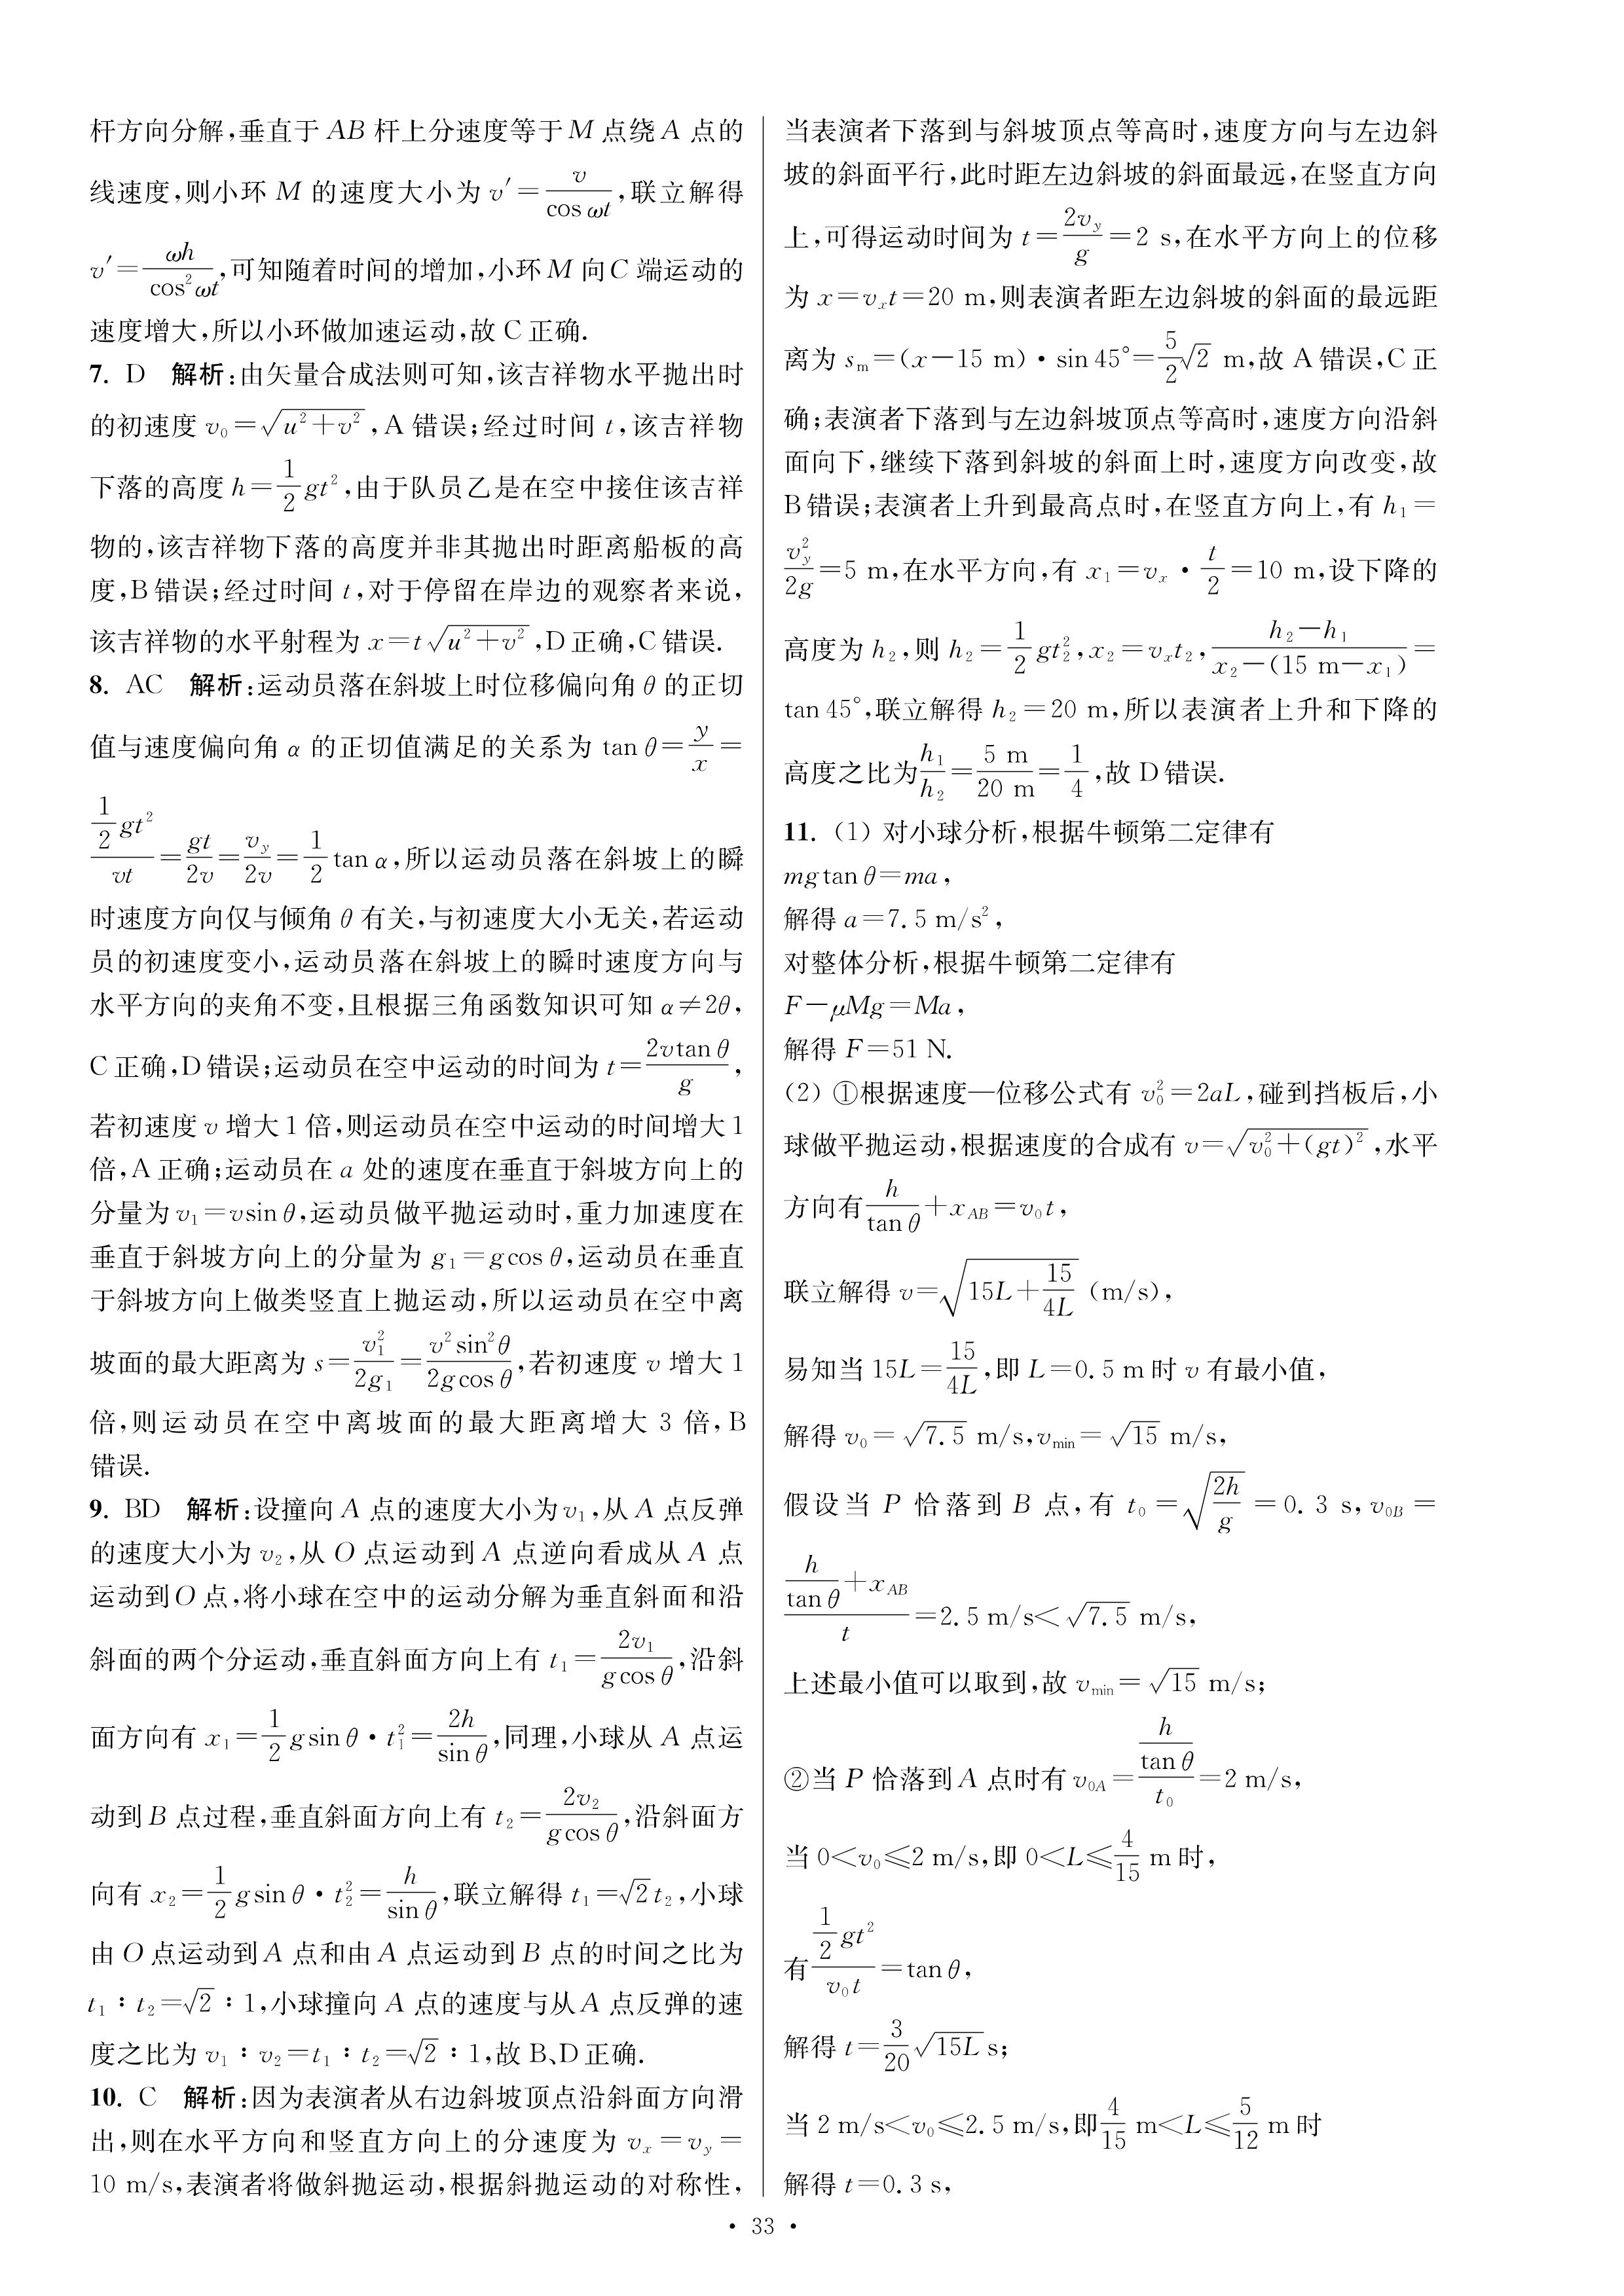 杆方向分解,垂直于 AB 杆上分速度等于 M 点绕 A 点的
线速度,则小环 M 的速度大小为 v′=v/cos ωt,联立解得
v′=ωh/cos²ωt,可知随着时间的增加,小环 M 向 C 端运动的
速度增大,所以小环做加速运动,故 C 正确.
7. D 解析:由矢量合成法则可知,该吉祥物水平抛出时
的初速度 v₀=√(u²+v²),A 错误;经过时间 t,该吉祥物
下落的高度 h=1/2 gt²,由于队员乙是在空中接住该吉祥
物的,该吉祥物下落的高度并非其抛出时距离船板的高
度,B 错误;经过时间 t,对于停留在岸边的观察者来说,
该吉祥物的水平射程为 x=t√(u²+v²),D 正确,C 错误.
8. AC 解析:运动员落在斜坡上时位移偏向角 θ 的正切
值与速度偏向角 α 的正切值满足的关系为 tan θ=y/x=
(1/2 gt²)/vt=gt/2v=v_y/2v=1/2 tan α,所以运动员落在斜坡上的瞬
时速度方向仅与倾角 θ 有关,与初速度大小无关,若运动
员的初速度变小,运动员落在斜坡上的瞬时速度方向与
水平方向的夹角不变,且根据三角函数知识可知 α≠2θ,
C 正确,D 错误;运动员在空中运动的时间为 t=2vtan θ/g,
若初速度 v 增大 1 倍,则运动员在空中运动的时间增大 1
倍,A 正确;运动员在 a 处的速度在垂直于斜坡方向上的
分量为 v₁=vsin θ,运动员做平抛运动时,重力加速度在
垂直于斜坡方向上的分量为 g₁=gcos θ,运动员在垂直
于斜坡方向上做类竖直上抛运动,所以运动员在空中离
坡面的最大距离为 s=v₁²/2g₁=v²sin²θ/2gcos θ,若初速度 v 增大 1
倍,则运动员在空中离坡面的最大距离增大 3 倍,B
错误.
9. BD 解析:设撞向 A 点的速度大小为 v₁,从 A 点反弹
的速度大小为 v₂,从 O 点运动到 A 点逆向看成从 A 点
运动到 O 点,将小球在空中的运动分解为垂直斜面和沿
斜面的两个分运动,垂直斜面方向上有 t₁=2v₁/gcos θ,沿斜
面方向有 x₁=1/2 gsin θ·t₁²=2h/sin θ,同理,小球从 A 点运
动到 B 点过程,垂直斜面方向上有 t₂=2v₂/gcos θ,沿斜面方
向有 x₂=1/2 gsin θ·t₂²=h/sin θ,联立解得 t₁=√2 t₂,小球
由 O 点运动到 A 点和由 A 点运动到 B 点的时间之比为
t₁∶t₂=√2∶1,小球撞向 A 点的速度与从 A 点反弹的速
度之比为 v₁∶v₂=t₁∶t₂=√2∶1,故 B、D 正确.
10. C 解析:因为表演者从右边斜坡顶点沿斜面方向滑
出,则在水平方向和竖直方向上的分速度为 vₓ=v_y=
10 m/s,表演者将做斜抛运动,根据斜抛运动的对称性,
当表演者下落到与斜坡顶点等高时,速度方向与左边斜
坡的斜面平行,此时距左边斜坡的斜面最远,在竖直方向
上,可得运动时间为 t=2v_y/g=2 s,在水平方向上的位移
为 x=vₓt=20 m,则表演者距左边斜坡的斜面的最远距
离为 sₘ=(x−15 m)·sin 45°=5/2 √2 m,故 A 错误,C 正
确;表演者下落到与左边斜坡顶点等高时,速度方向沿斜
面向下,继续下落到斜坡的斜面上时,速度方向改变,故
B 错误;表演者上升到最高点时,在竖直方向上,有 h₁=
v_y²/2g=5 m,在水平方向,有 x₁=vₓ·t/2=10 m,设下降的
高度为 h₂,则 h₂=1/2 gt₂²,x₂=vₓt₂,(h₂−h₁)/(x₂−(15 m−x₁))=
tan 45°,联立解得 h₂=20 m,所以表演者上升和下降的
高度之比为 h₁/h₂=5 m/20 m=1/4,故 D 错误.
11. (1) 对小球分析,根据牛顿第二定律有
mgtan θ=ma,
解得 a=7.5 m/s²,
对整体分析,根据牛顿第二定律有
F−μMg=Ma,
解得 F=51 N.
(2) ①根据速度—位移公式有 v₀²=2aL,碰到挡板后,小
球做平抛运动,根据速度的合成有 v=√(v₀²+(gt)²),水平
方向有 h/tan θ+x_AB=v₀t,
联立解得 v=√(15L+15/4L) (m/s),
易知当 15L=15/4L,即 L=0.5 m 时 v 有最小值,
解得 v₀=√7.5 m/s,v_min=√15 m/s,
假设当 P 恰落到 B 点,有 t₀=√(2h/g)=0.3 s,v₀B=
(h/tan θ+x_AB)/t=2.5 m/s<√7.5 m/s,
上述最小值可以取到,故 v_min=√15 m/s;
②当 P 恰落到 A 点时有 v₀A=(h/tan θ)/t₀=2 m/s,
当 0<v₀≤2 m/s,即 0<L≤4/15 m 时,
有 (1/2 gt²)/v₀t=tan θ,
解得 t=3/20 √15L s;
当 2 m/s<v₀≤2.5 m/s,即 4/15 m<L≤5/12 m 时
解得 t=0.3 s,
· 33 ·